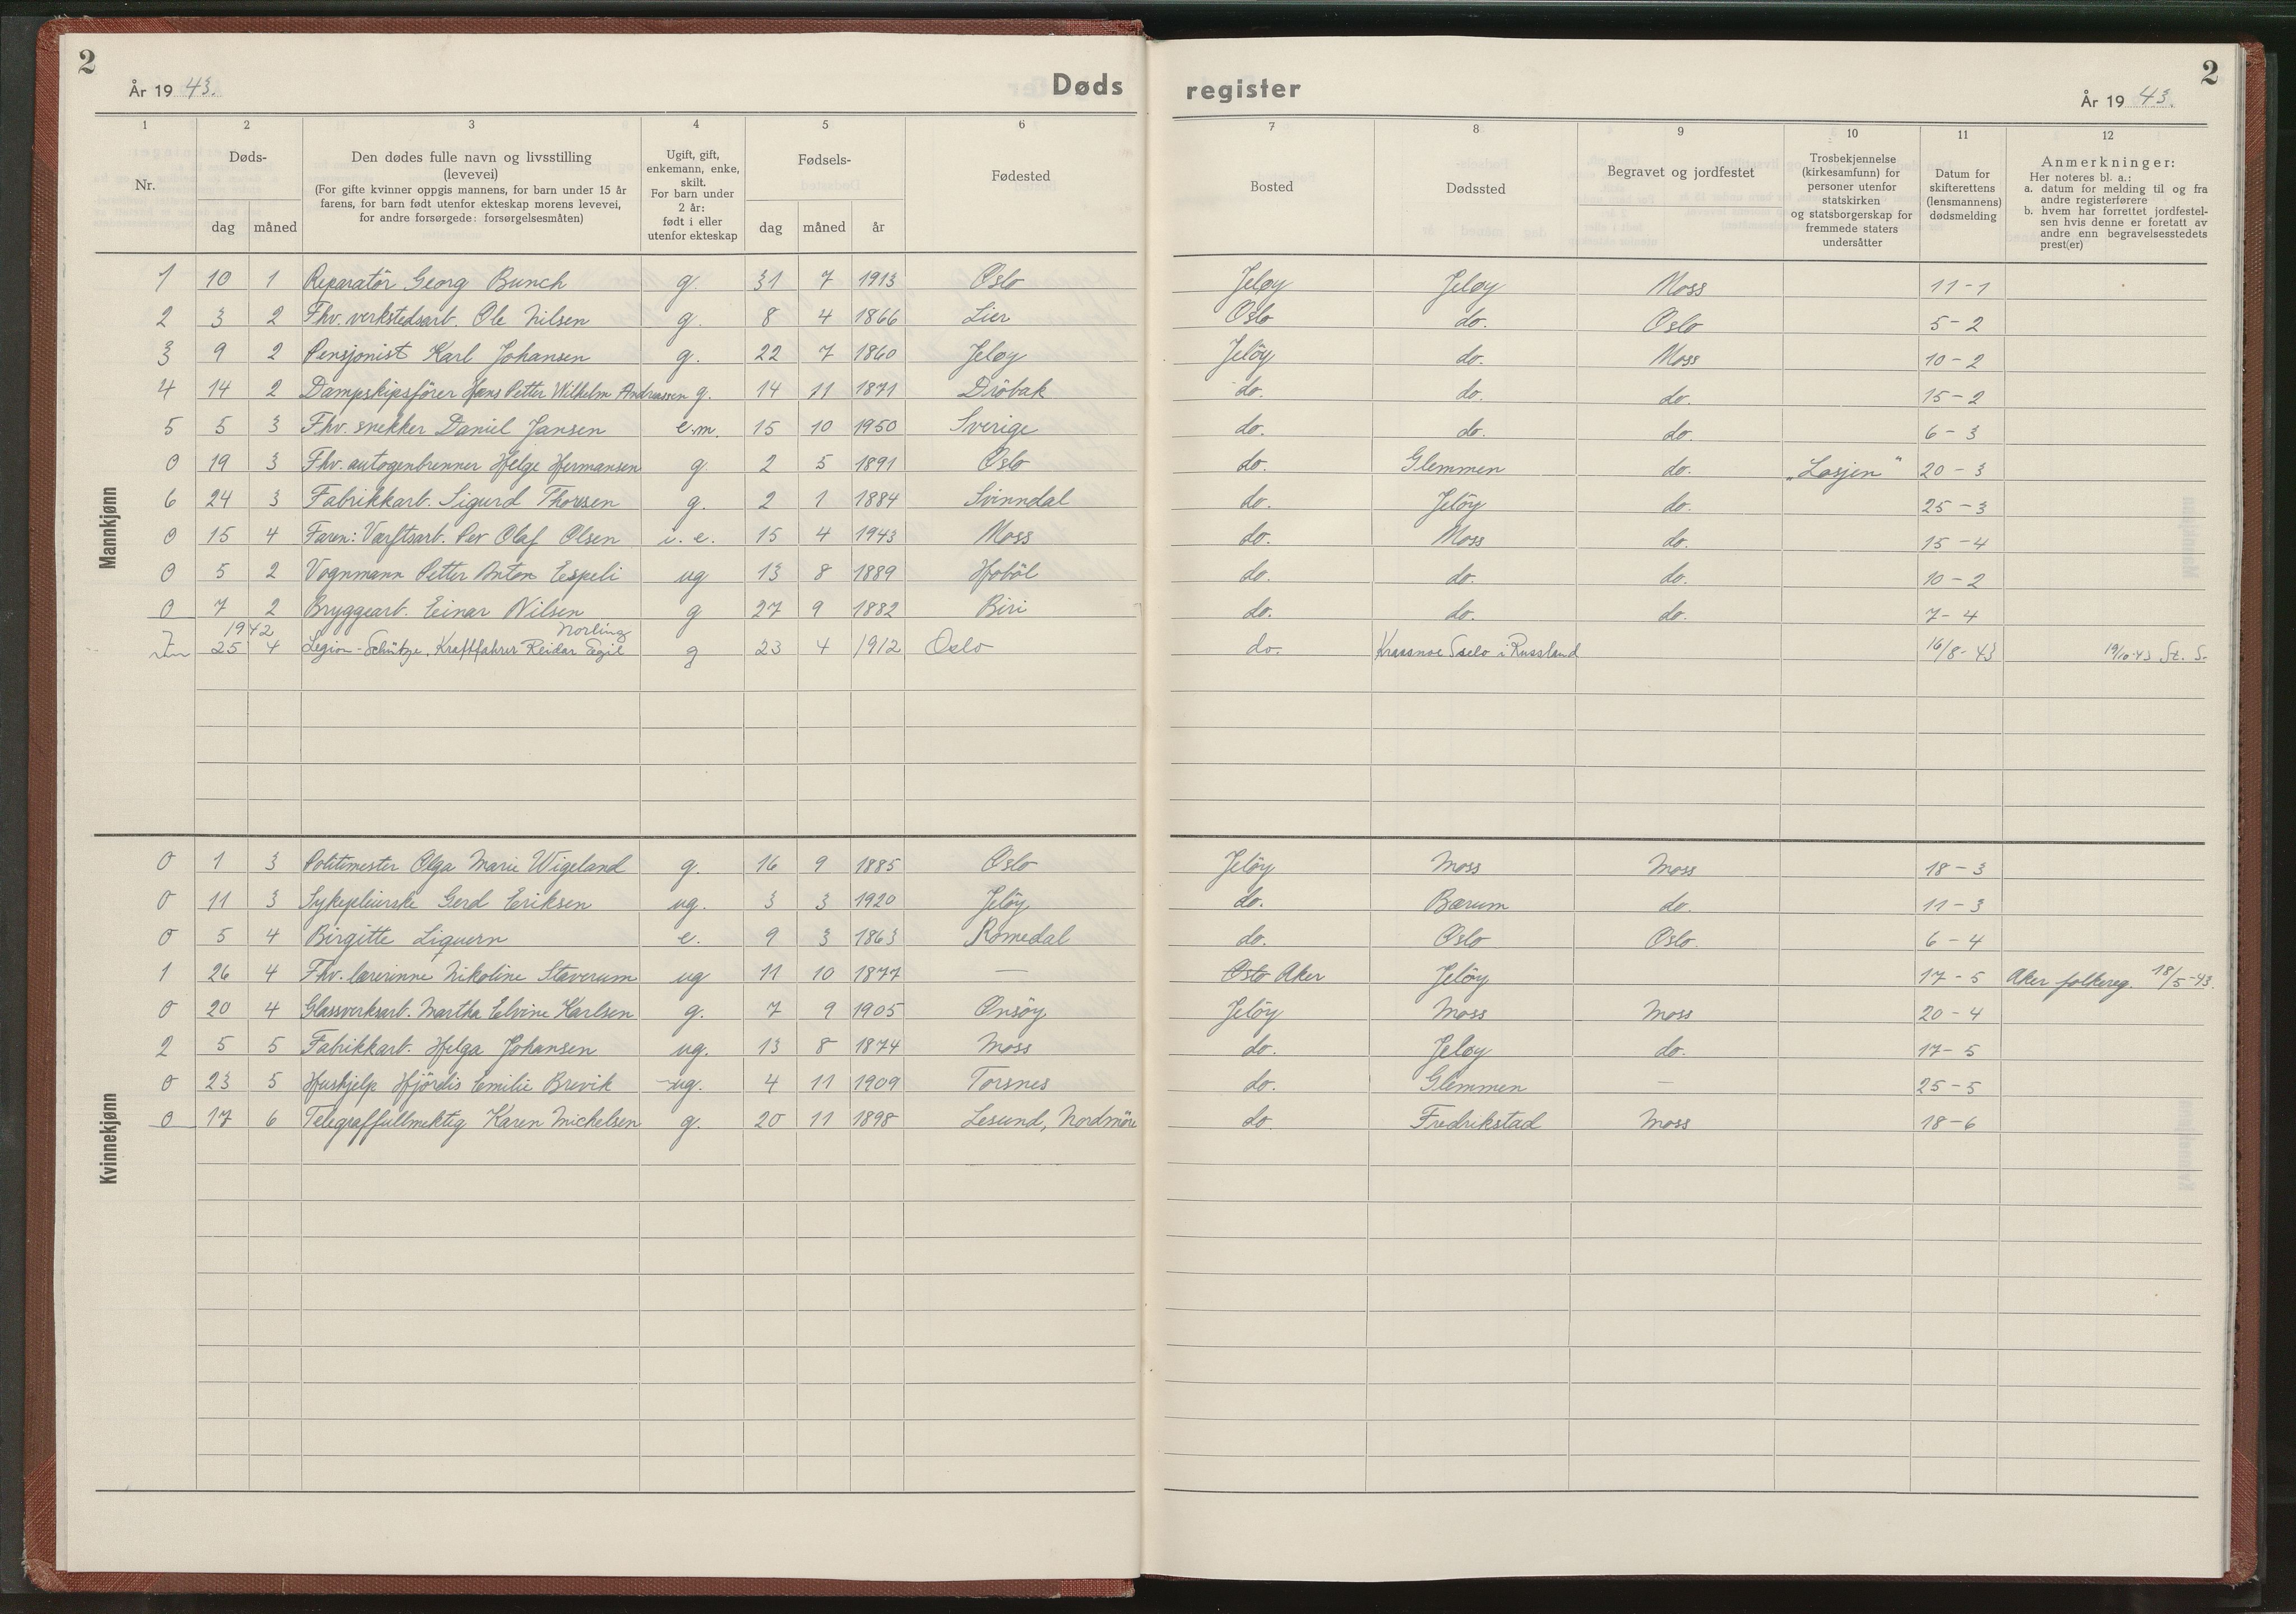 2
År 19 43.
Døds
register
År 19 43.
2
1 2 3 4 5 6 7 8 9 10 11 12
Nr.
Døds-
dag måned
Den dødes fulle navn og livsstilling
(levevei)
(For gifte kvinner oppgis mannens, for barn under 15 år
farens, for barn født utenfor ekteskap morens levevei,
for andre forsørgede: forsørgelsesmåten)
Ugift, gift,
enkemann, enke,
skilt.
For barn under
2 år:
født i eller
utenfor ekteskap
Fødsels-
dag måned år
Fødested
Bosted
Dødssted
Begravet og jordfestet
Trosbekjennelse
(kirkesamfunn) for
personer utenfor
statskirken
og statsborgerskap for
fremmede staters
undersåtter
Datum for
skifterettens
(lensmannens)
dødsmelding
Anmerkninger:
Her noteres bl. a.:
a. datum for melding til og fra
andre registerførere
b. hvem har forrettet jordfestel-
sen hvis denne er foretatt av
andre enn begravelsesstedets
prest(er)
Mannkjønn
1 10 1 Reparatör Georg Bunch g. 31 7 1913 Oslo Jeløy Jeløy Moss 11-1
2 3 2 Fhv. verkstedsarb. Ole Nilsen g. 8 4 1866 Lier Oslo do. Oslo 5-2
3 9 2 Pensjonist Karl Johansen g. 22 7 1860 Jeløy Jelöy do. Moss 10-2
4 14 2 Dampskipsförer Hans Petter Wilhelm Andreassen g. 14 11 1871 Dröbak do. do. do. 15-2
5 5 3 Fhv. snekker Daniel Jansen e.m. 15 10 1950 Sverige do. do. do. 6-3
0 19 3 Fhv. autogenbrenner Helge Hermansen g. 2 5 1891 Oslo do. Glemmen do. „Losjen" 20-3
6 24 3 Fabrikkarb. Sigurd Thoresen g. 2 1 1884 Svinndal do. Jelöy do. 25-3
0 15 4 Faren: Værftsarb. Per Olaf Olsen i. e. 15 4 1943 Moss do. Moss do. 15-4
0 5 2 Vognmann Petter Anton Espeli ug 13 8 1889 Hoböl do. do. do. 10-2
0 7 2 Bryggearb. Einar Nilsen g 27 9 1882 Biri do. do. do. 7-4
1942 Norling
7 25 4 Legion-Schütze, Kraftfahrer Reidar Egil g 23 4 1912 Oslo do. Krassnoe Sselo i Russland 16/8-43 19/10-43 St. S.
Kvinnekjønn
0 1 3 Politimester Olga Marie Wigeland g. 16 9 1885 Oslo Jelöy Moss Moss 18-3
0 11 3 Sykepleierske Gerd Eriksen ug. 3 3 1920 Jelöy do. Bærum do. 11-3
0 5 4 Birgitte Liguern e. 9 3 1863 Romedal do. Oslo Oslo. 6-4
1 26 4 Fhv. lærerinne Nikoline Staverum ug 11 10 1877 — Oslo Aker Jelöy 17-5 Aker folkereg. 18/5-43.
0 20 4 Glassverksarb. Martha Elvine Karlsen g. 7 9 1905 Onsöy Jelöy Moss Moss 20-4
2 5 5 Fabrikkarb. Helga Johansen ug. 13 8 1874 Moss do. Jeløy do. 17-5
0 23 5 Hushjelp Hjördis Emilie Brevik ug. 4 11 1909 Torsnes do. Glemmen — 25-5
0 17 6 Telegraffullmektig Karen Michelsen g. 20 11 1898 Lesund, Nordmöre do. Fredrikstad Moss 18-6